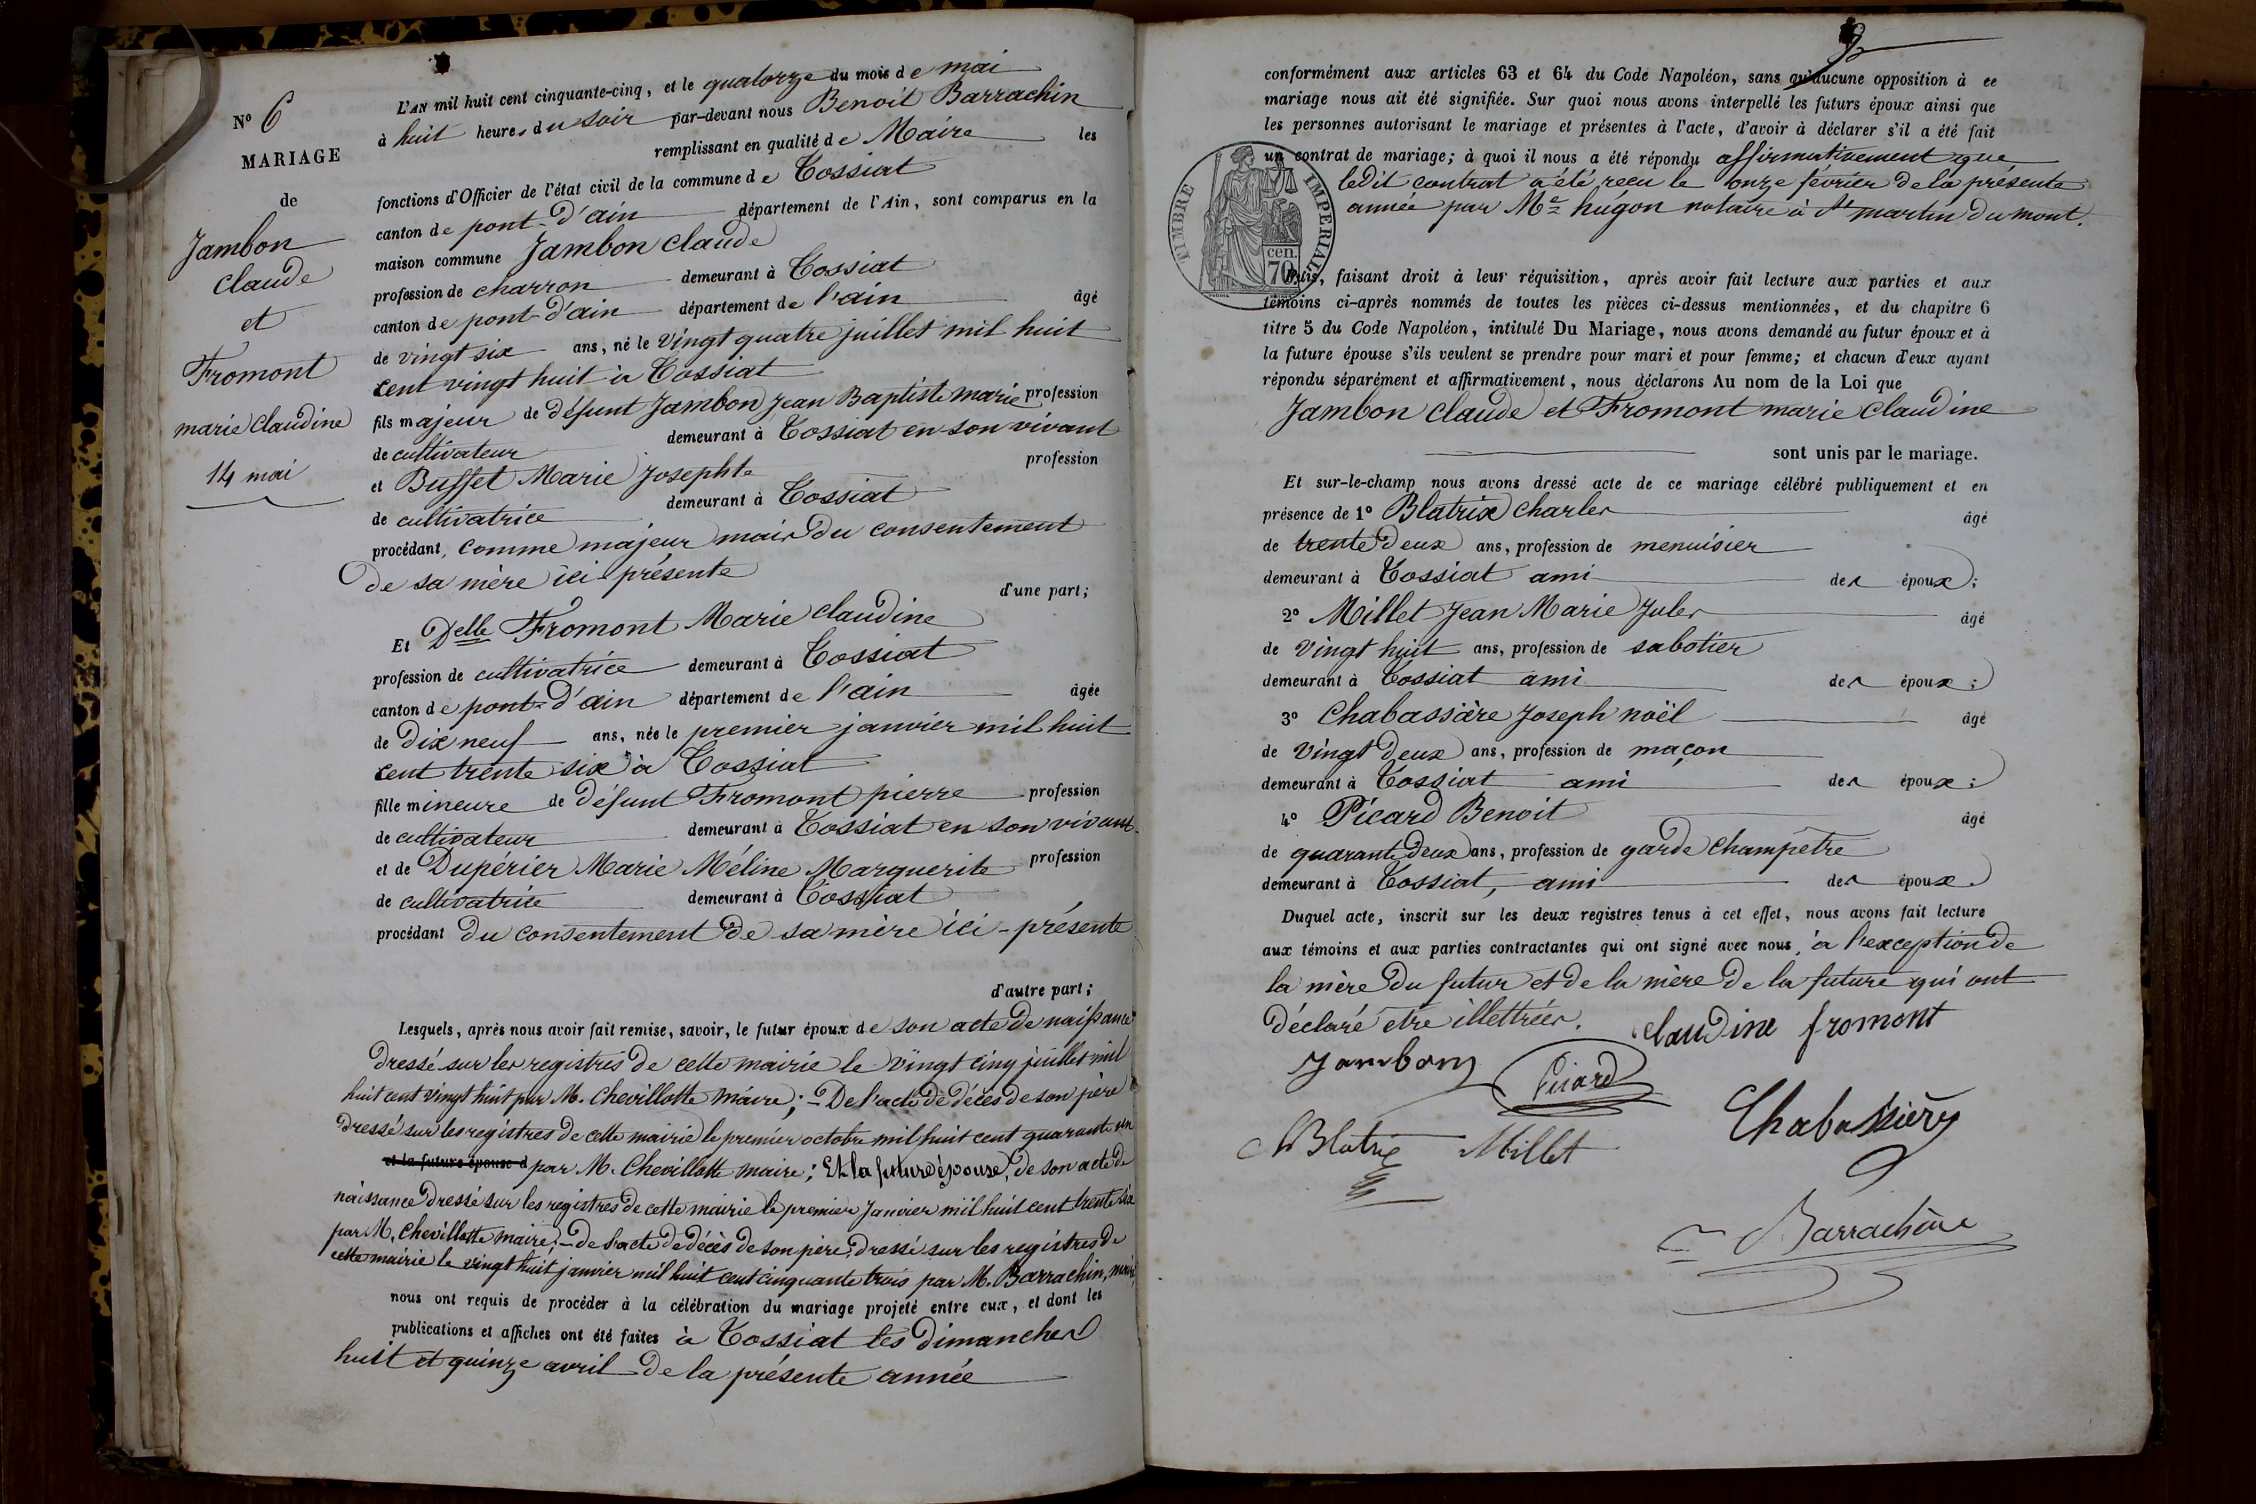 N° 6
MARIAGE
de
Jambon
Claude
et
Fromont
marie Claudine
14 mai
L'AN mil huit cent cinquante-cinq, et le quatorze du mois de mai
à huit heures du soir par-devant nous Benoit Barrachin
remplissant en qualité de Maire les
fonctions d'Officier de l'état civil de la commune de Tossiat
canton de pont-d'ain département de l'Ain, sont comparus en la
maison commune Jambon Claude
profession de charron demeurant à Tossiat
canton de pont-d'ain département de l'ain âgé
de vingt six ans, né le vingt quatre juillet mil huit
cent vingt huit à Tossiat
fils majeur de défunt Jambon Jean Baptiste marie profession
de cultivateur demeurant à Tossiat en son vivant
et Buffet Marie Josephte profession
de cultivatrice demeurant à Tossiat
procédant, comme majeur mais du consentement
de sa mère ici-présente
d'une part;
Et Delle Fromont Marie Claudine
profession de cultivatrice demeurant à Tossiat
canton de pont-d'ain département de l'ain âgée
de Dix neuf ans, née le premier janvier mil huit
cent trente six à Tossiat
fille mineure de défunt Fromont pierre profession
de cultivateur demeurant à Tossiat en son vivant
et de Dupérier Marie Méline Marguerite profession
de cultivatrice demeurant à Tossiat
procédant du consentement de sa mère ici-présente
d'autre part;
Lesquels, après nous avoir fait remise, savoir, le futur époux de son acte de naissance
dressé sur les registres de cette mairie le vingt cinq juillet mil
huit cent vingt huit par M. Chevillotte maire; - De l'acte de décès de son père
dressé sur les registres de cette mairie le premier octobre mil huit cent quarante un
et la future épouse d par M. Chevillotte maire; Et la future épouse, de son acte de
naissance dressé sur les registres de cette mairie le premier Janvier mil huit cent trente six
par M. Chevillotte maire; - de l'acte de décès de son père, dressé sur les registres de
cette mairie le vingt huit janvier mil huit cent cinquante trois par M. Barrachin, maire,
nous ont requis de procéder à la célébration du mariage projeté entre eux, et dont les
publications et affiches ont été faites à Tossiat les dimanches
huit et quinze avril de la présente année
conformément aux articles 63 et 64 du Code Napoléon, sans qu'aucune opposition à ce
mariage nous ait été signifiée. Sur quoi nous avons interpellé les futurs époux ainsi que
les personnes autorisant le mariage et présentes à l'acte, d'avoir à déclarer s'il a été fait
un contrat de mariage; à quoi il nous a été répondu affirmativement que
ledit contrat a été reçu le onze février de la présente
année par Me hugon notaire à St martin du mont.
TIMBRE IMPERIAL
cen.
70
Puis, faisant droit à leur réquisition, après avoir fait lecture aux parties et aux
témoins ci-après nommés de toutes les pièces ci-dessus mentionnées, et du chapitre 6
titre 5 du Code Napoléon, intitulé Du Mariage, nous avons demandé au futur époux et à
la future épouse s'ils veulent se prendre pour mari et pour femme; et chacun d'eux ayant
répondu séparément et affirmativement, nous déclarons Au nom de la Loi que
Jambon Claude et Fromont marie Claudine
sont unis par le mariage.
Et sur-le-champ nous avons dressé acte de ce mariage célébré publiquement et en
présence de 1° Blatrix Charles âgé
de trente deux ans, profession de menuisier
demeurant à Tossiat ami des époux;
2° Millet Jean Marie Jules âgé
de vingt huit ans, profession de sabotier
demeurant à Tossiat ami des époux;
3° Chabassière Joseph noël âgé
de vingt deux ans, profession de maçon
demeurant à Tossiat ami des époux;
4° Picard Benoit âgé
de quarante deux ans, profession de garde champêtre
demeurant à Tossiat, ami des époux.
Duquel acte, inscrit sur les deux registres tenus à cet effet, nous avons fait lecture
aux témoins et aux parties contractantes qui ont signé avec nous, à l'exception de
la mère du futur et de la mère de la future qui ont
déclaré être illettrées.
Claudine fromont
Jambon
Picard
Chabassière
Blatrix
Millet
Barrachin